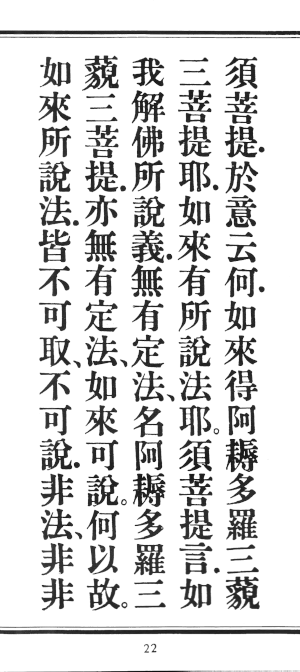 須菩提.於意云何.如來得阿耨多羅三藐
三菩提耶.如來有所說法耶。須菩提言.如
我解佛所說義.無有定法、名阿耨多羅三
藐三菩提.亦無有定法、如來可說。何以故。
如來所說法.皆不可取、不可說.非法、非非
22